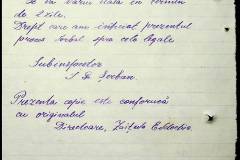 se va varui toata in termen
de 2 zile.
Drept care am incheiat prezentul
proces verbal spre cele legale
Subinspector
I. G. Serban
Prezenta copie este conformă
cu originalul
Directoare,